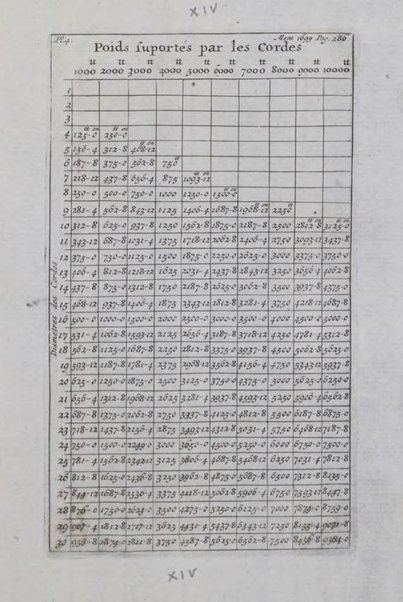 XIV
Pl. 4. Mem. 1699 Pag. 286
Poids suportés par les Cordes
tt tt tt tt tt tt tt tt tt tt
1000 2000 3000 4000 5000 6000 7000 8000 9000 10000
Diametres des Cordes
1
2
3
4 125-0 250-0
5 156-4 312-8 468-12
6 187-8 375-0 562-8 750
7 218-12 437-8 656-4 875 1093-12
8 250-0 500-0 750-0 1000 1250-0 1500-0
9 281-4 562-8 843-12 1125 1406-4 1687-8 1968-12 2250
10 312-8 625-0 937-8 1250 1562-8 1875-0 2187-8 2500 2812-8 3125-0
11 343-12 687-8 1031-4 1375 1718-12 2062-8 2406-4 2750 3093-12 3437-8
12 375-0 750-0 1125-0 1500 1875-0 2250-0 2625-0 3000 3375-0 3750-0
13 406-4 812-8 1218-12 1625 2031-4 2437-8 2843-12 3250 3656-4 4062-8
14 437-8 875-0 1312-8 1750 2187-8 2625-0 3062-8 3500 3937-8 4375-0
15 468-12 937-8 1406-4 1875 2343-12 2812-8 3281-4 3750 4218-12 4687-8
16 500-0 1000-0 1500-0 2000 2500-0 3000-0 3500-0 4000 4500-0 5000-0
17 531-4 1062-8 1593-12 2125 2656-4 3187-8 3718-12 4250 4781-4 5312-8
18 562-8 1125-0 1687-8 2250 2812-8 3375-0 3937-8 4500 5062-8 5625-0
19 593-12 1187-8 1781-4 2375 2968-12 3562-8 4156-4 4750 5343-12 5937-8
20 625-0 1250-0 1875-0 2500 3125-0 3750-0 4375-0 5000 5625-0 6250-0
21 656-4 1312-8 1968-12 2625 3281-4 3937-8 4593-12 5250 5906-4 6562-8
22 687-8 1375-0 2062-8 2750 3437-8 4125-0 4812-8 5500 6187-8 6875-0
23 718-12 1437-8 2156-4 2875 3593-12 4312-8 5031-4 5750 6468-12 7187-8
24 750-0 1500-0 3000 4500-0 5250-0 6000 6750-0 7500-0
25 781-4 1562-8 3125 4687-8 5468-12 6250 7031-4 7812-8
26 812-8 1625-0 3250 4875-0 5687-8 6500 7312-8
27 844-12 1687-8 3375 5062-8 5906-4 6750 7593-12
28 1750-0 5250-0 6125-0 7000
29 1812-8 3625 5437-8 6343-12 7250
30 3750 5625-0 6562-8 7500
XIV